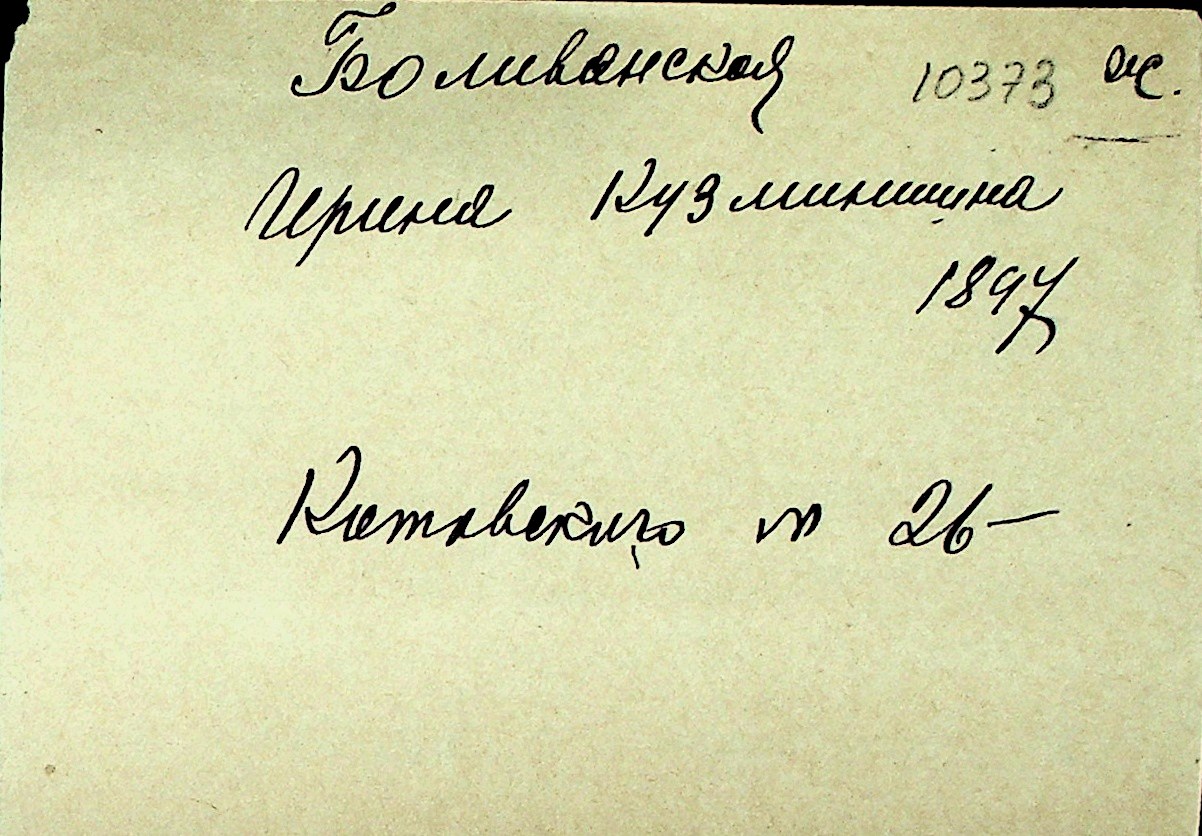 Боливанская 10373 ж.
Ирина Кузминична
1897
Котовского № 26-